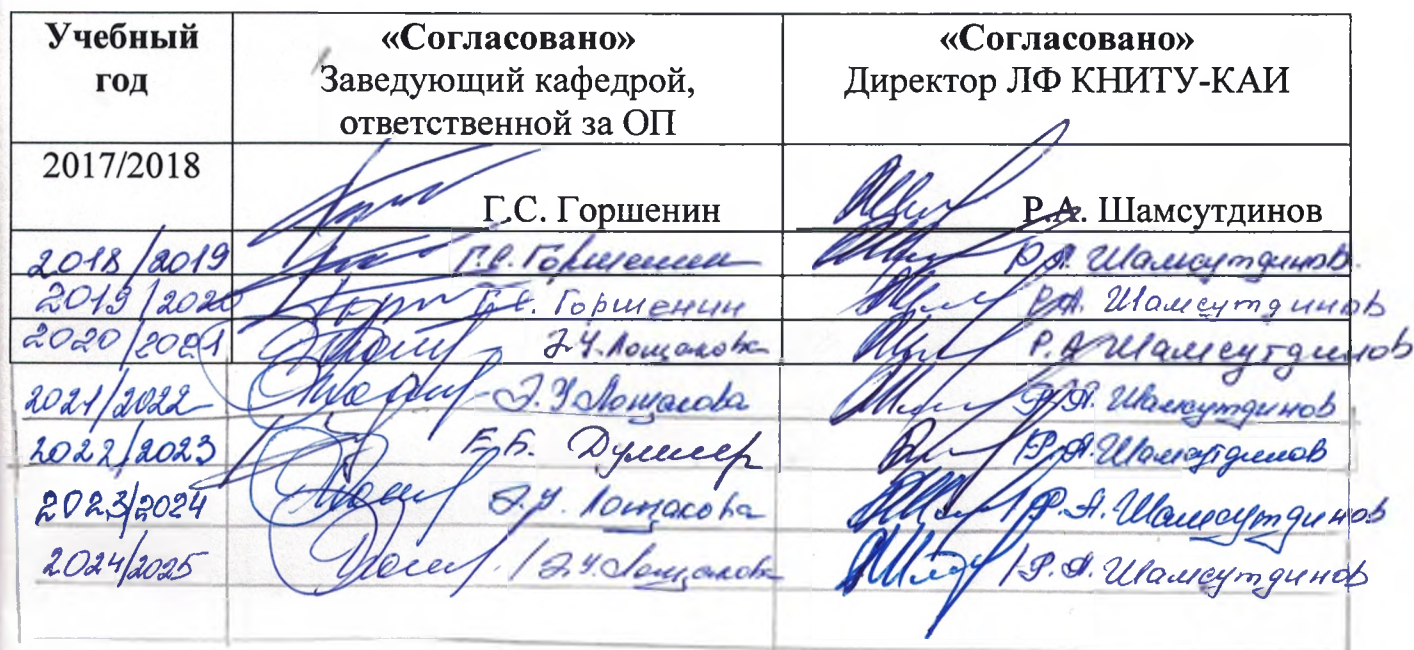 Учебный год
«Согласовано»
Заведующий кафедрой,
ответственной за ОП
«Согласовано»
Директор ЛФ КНИТУ-КАИ
2017/2018 Г.С. Горшенин Р.А. Шамсутдинов
2018/2019 Г.С. Горшенин Р.А. Шамсутдинов
2019/2020 Г.С. Горшенин Р.А. Шамсутдинов
2020/2021 Э.У. Лощакова Р.А. Шамсутдинов
2021/2022 Э.У. Лощакова Р.А. Шамсутдинов
2022/2023 Е.Б. Думлер Р.А. Шамсутдинов
2023/2024 Э.У. Лощакова Р.А. Шамсутдинов
2024/2025 Э.У. Лощакова Р.А. Шамсутдинов